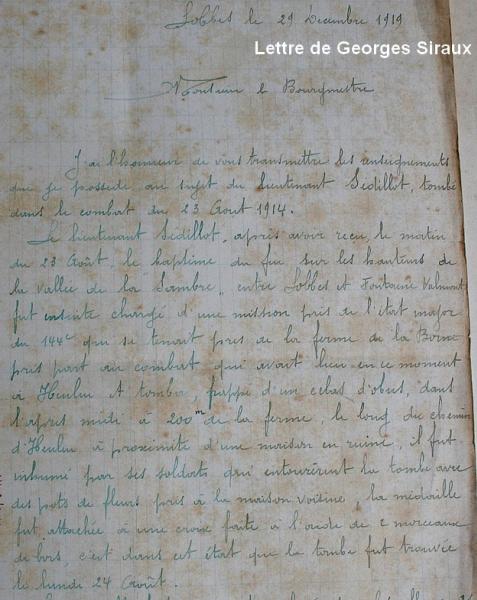 Lobbes le 29 Décembre 1919
Lettre de Georges Siraux
Monsieur le Bourgmestre
J'ai l'honneur de vous transmettre les renseignements
que je possède au sujet du lieutenant Sédillot, tombé
dans le combat du 23 Août 1914.
Le lieutenant Sédillot, après avoir reçu, le matin
du 23 Août, le baptême du feu sur les hauteurs de
la vallée de la Sambre, entre Lobbes et Fontaine Valmont
fut ensuite chargé d'une mission près de l'état major
du 144e qui se tenait près de la ferme de la Borne
pris part au combat qui avait lieu en ce moment
à Heuleu et tomba, frappé d'un éclat d'obus, dans
l'après midi à 200m de la ferme, le long du chemin
d'Heuleu à proximité d'une maison en ruine, il fut
inhumé par ses soldats qui entourèrent la tombe avec
des pots de fleurs pris à la maison voisine, la médaille
fut attachée à une croix faite à l'aide de 2 morceaux
de bois, c'est dans cet état que la tombe fut trouvée
le lundi 24 Août.